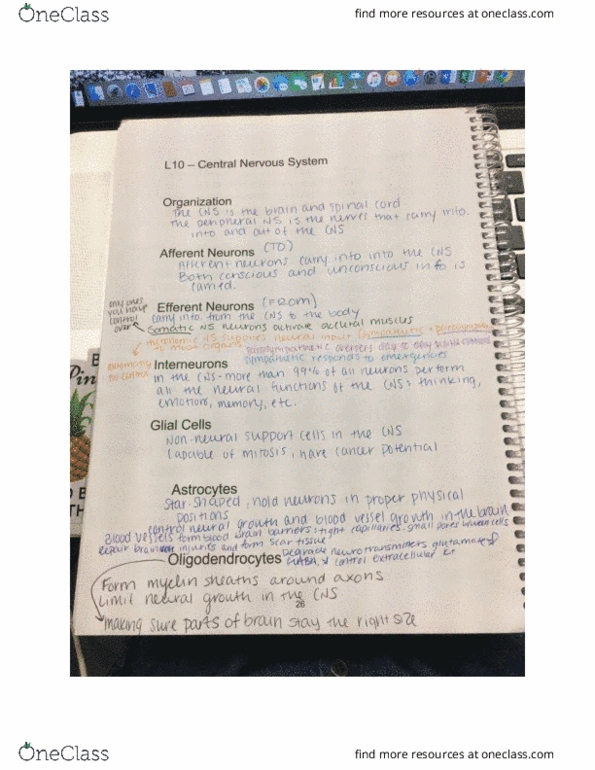 OneClass
find more resources at oneclass.com
L10 – Central Nervous System
Organization
The CNS is the brain and spinal cord
The peripheral NS is the nerves that carry into
into and out of the CNS
Afferent Neurons (TO)
Afferent neurons carry into into the CNS
Both conscious and unconscious info is
carried.
only ones
you have
control
over
Efferent Neurons (FROM)
carry into from the CNS to the body
Somatic NS neurons activate skeletal muscles
NS supplies neural input (sympathetic +
to most organs
Parasympathetic oversees day to day
sympathetic responds to emergencies
no control
Interneurons
in the CNS - more than 99% of all neurons perform
all the neural functions of the CNS: thinking,
emotions, memory, etc.
Glial Cells
Non-neural support cells in the CNS
Capable of mitosis, have cancer potential
Astrocytes
Star-shaped, hold neurons in proper physical
positions
control neural growth and blood vessel growth in the brain
Blood vessels form blood brain barriers: tight capillaries, small pores between cells
repair brain injuries and form scar tissue
Degrade neurotransmitters glutamate &
GABA, control extracellular K+
Oligodendrocytes
Form myelin sheaths around axons
Limit neural growth in the CNS
26
making sure parts of brain stay the right size
OneClass
find more resources at oneclass.com